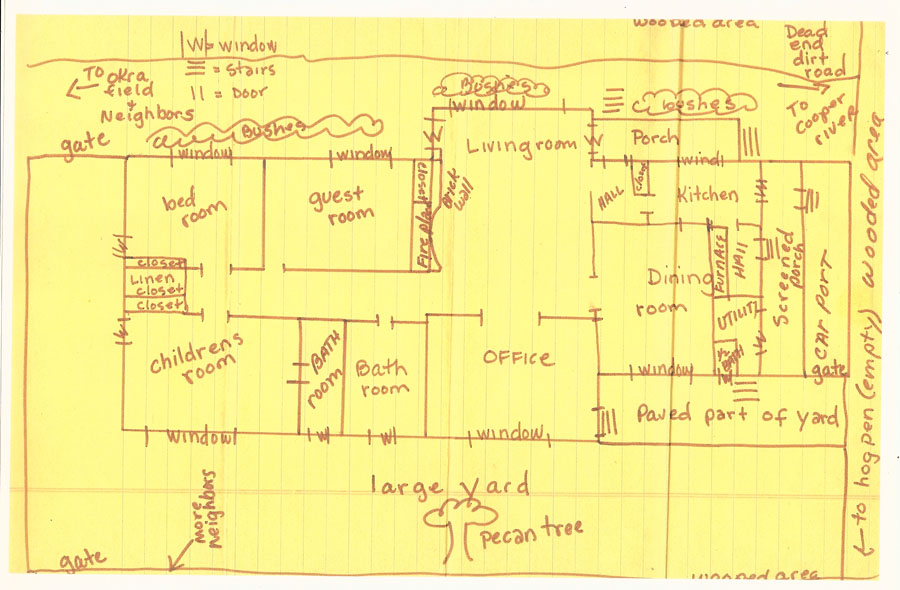 wooded area
|W|= window
= Stairs
|| = Door
TO
OKra
field
+
Neighbors
Dead
end
dirt
road
TO
Cooper
river
Bushes
window
bushes
Bushes
gate
window
window
Livingroom
W
Porch
W
wind
bed
room
guest
room
Fire place
brick
wall
HALL
closet
Kitchen
W
W
closet
Linen
closet
closet
W
FURNACE
HALL
Dining
room
UTILITY
1/2
BATH
W
W
Screened
porch
CAR PORT
gate
childrens
room
BATH
room
Bath
room
OFFICE
window
window
W
W
window
Paved part of yard
← to hogpen (empty) wooded area
large yard
pecan tree
more
neighbors
gate
wooded area